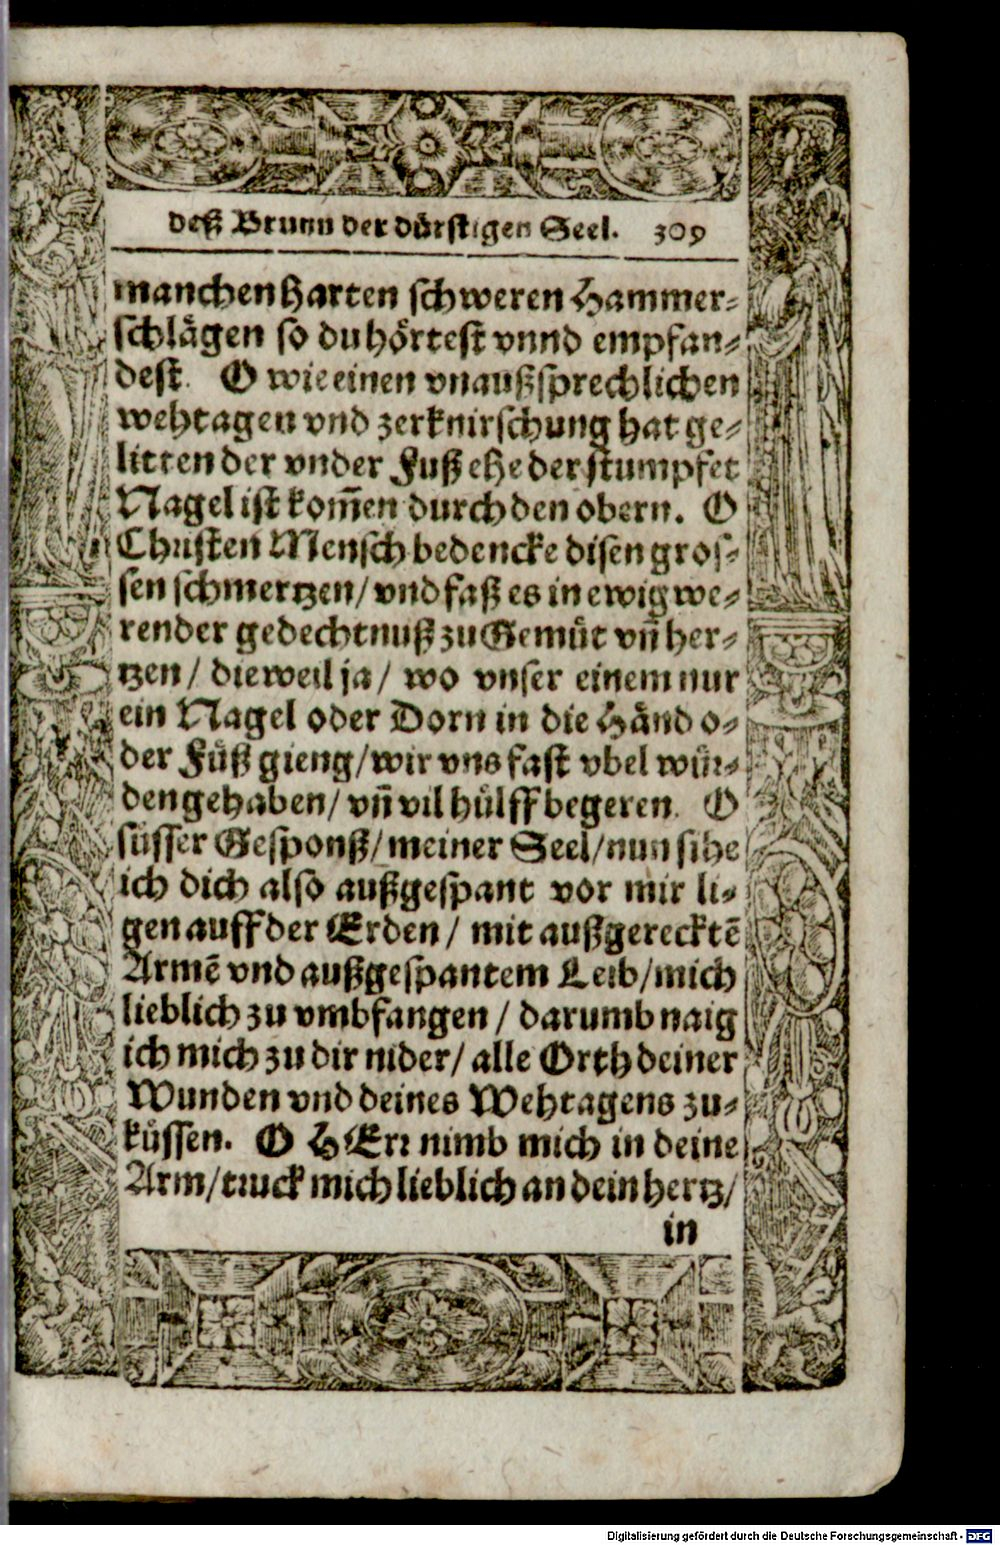 deß Brunn der dürstigen Seel. 309
manchen harten schweren Hammer-
schlägen so du hörtest vnnd empfan-
dest. O wie einen vnaußsprechlichen
wehtagen vnd zerknirschung hat ge-
litten der vnder Fuß ehe der stumpfet
Nagel ist kom̃en durch den obern. O
Christen Mensch bedencke disen gros-
sen schmertzen/ vnd faß es in ewig we-
render gedechtnuß zu Gemüt vñ her-
tzen/ dieweil ja/ wo vnser einem nur
ein Nagel oder Dorn in die Händ o-
der Füß gieng/ wir vns fast vbel wür-
den gehaben/ vñ vil hülff begeren. O
süsser Gesponß/ meiner Seel/ nun sihe
ich dich also außgespant vor mir li-
gen auff der Erden/ mit außgerecktē
Armē vnd außgespantem Leib/ mich
lieblich zu vmbfangen/ darumb naig
ich mich zu dir nider/ alle Orth deiner
Wunden vnd deines Wehtagens zu-
küssen. O HErr nimb mich in deine
Arm/ truck mich lieblich an dein hertz/
in
Digitalisierung gefördert durch die Deutsche Forschungsgemeinschaft - DFG